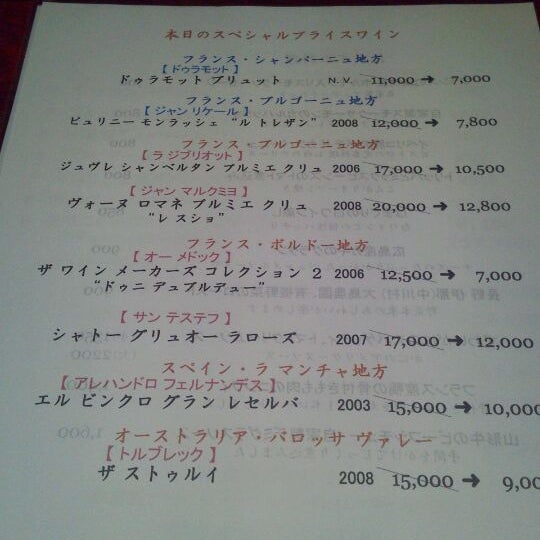 本日のスペシャルプライスワイン
フランス・シャンパーニュ地方
【 ドゥラモット 】
ドゥラモット ブリュット N.V. 11,000 ➔ 7,000
フランス・ブルゴーニュ地方
【 ジャン リケール 】
ピュリニー モンラッシェ “ル トレザン” 2008 12,000 ➔ 7,800
フランス・ブルゴーニュ地方
【 ラ ジブリオット 】
ジュヴレ シャンベルタン プルミエ クリュ 2006 17,000 ➔ 10,500
【 ジャン マルクミヨ 】
ヴォーヌ ロマネ プルミエ クリュ 2008 20,000 ➔ 12,800
“レ スショ”
フランス・ボルドー地方
【 オー メドック 】
ザ ワイン メーカーズ コレクション 2 2006 12,500 ➔ 7,000
“ドゥニ デュブルデュー”
【 サン テステフ 】
シャトー グリュオー ラローズ 2007 17,000 ➔ 12,000
スペイン・ラ マンチャ地方
【 アレハンドロ フェルナンデス 】
エル ビンクロ グラン レセルバ 2003 15,000 ➔ 10,000
オーストラリア・バロッサ ヴァレー
【 トルブレック 】
ザ ストゥルイ 2008 15,000 ➔ 9,00